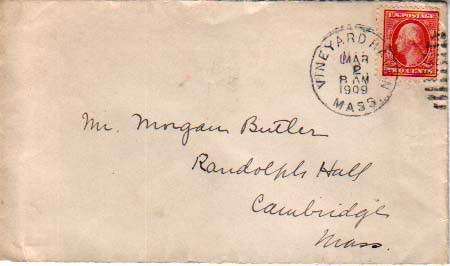 U.S. POSTAGE
TWO CENTS
VINEYARD HAVEN
MAR
2
8 AM
1909
MASS.
Mr. Morgan Butler
Randolph Hall
Cambridge
Mass.